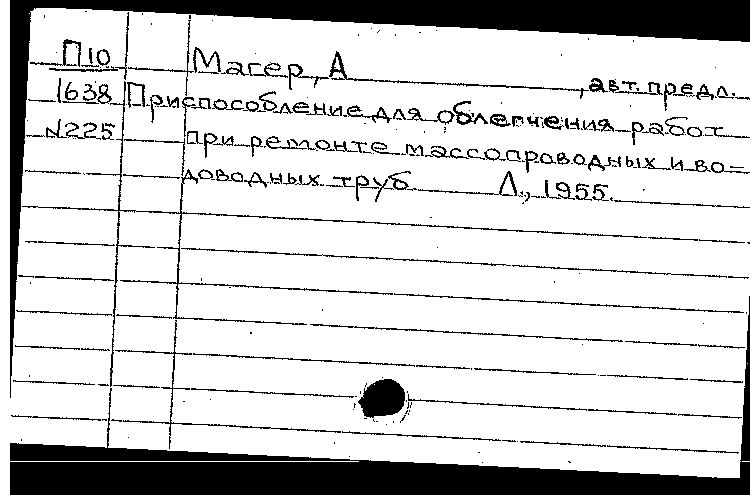 П10 Магер, А , авт. предл.
1638 Приспособление для облегчения работ
N225 при ремонте массопроводных и во=
доводных труб Л., 1955.